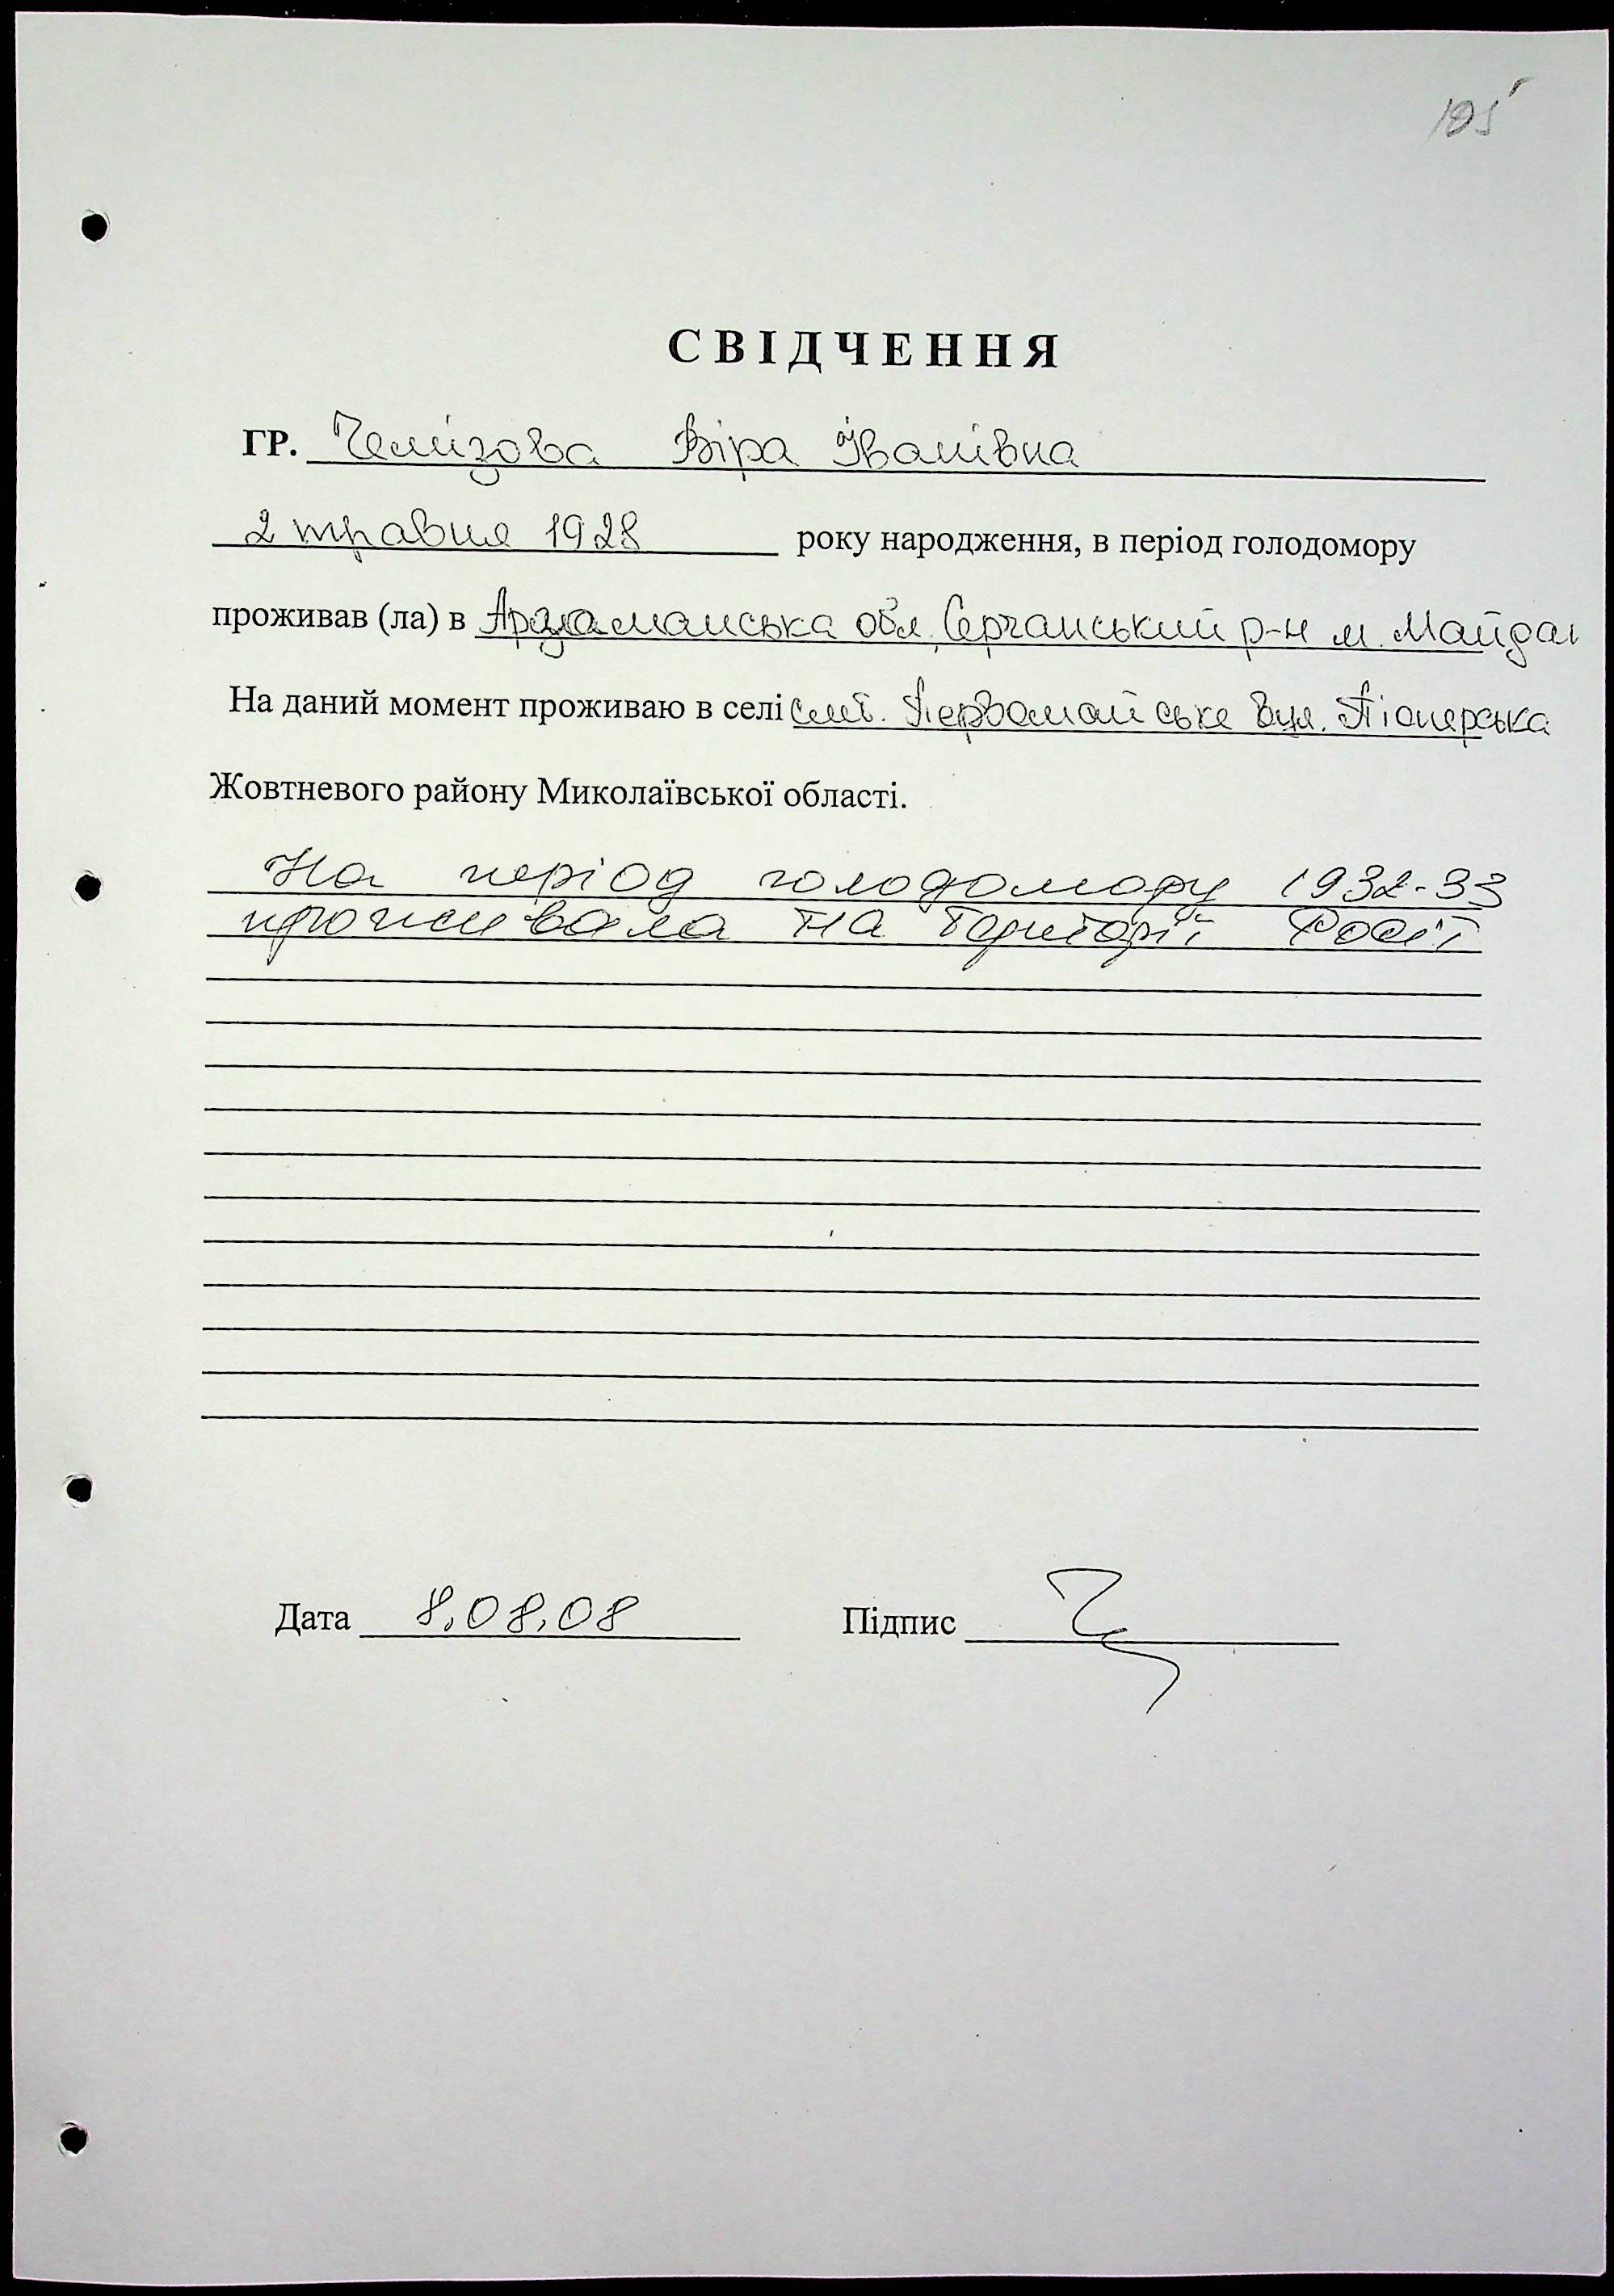 105
СВІДЧЕННЯ
ГР. Челізова Віра Іванівна
2 травня 1928 року народження, в період голодомору
проживав (ла) в Арзаманська обл. Серчанський р-н м. Майдан
На даний момент проживаю в селі смт. Первомайське вул. Піонерська
Жовтневого району Миколаївської області.
На період голодомору 1932-33
проживала на території Росії
Дата 8.08.08 Підпис